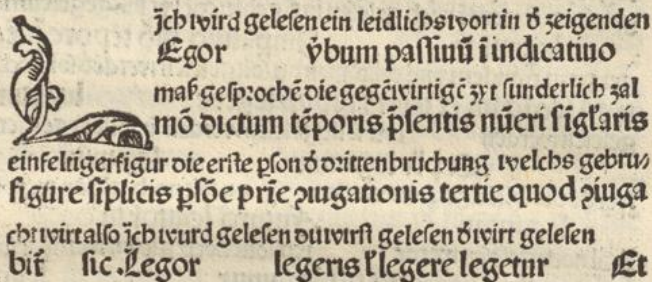 ĩch wird gelesen ein leidlichs wort in d̕ zeigenden
LEgor v̕bum passiuũ ĩ indicatiuo
maß gesprochẽ die gegẽwirtigẽ zyt sunderlich zal
mõ dictum tẽporis p̃sentis nũeri sigl̕aris
einfeltiger figur die erste ꝑson d̕ dritten bruchung welchs gebru⸗
figure sĩplicis ꝑsõe prĩe ꝯiugationis tertie quod ꝯiuga
cht wirt also ĩch wurd gelesen du wirst gelesen d̕ wirt gelesen
bit̃ sic .Legor legeris ł legere legetur Et